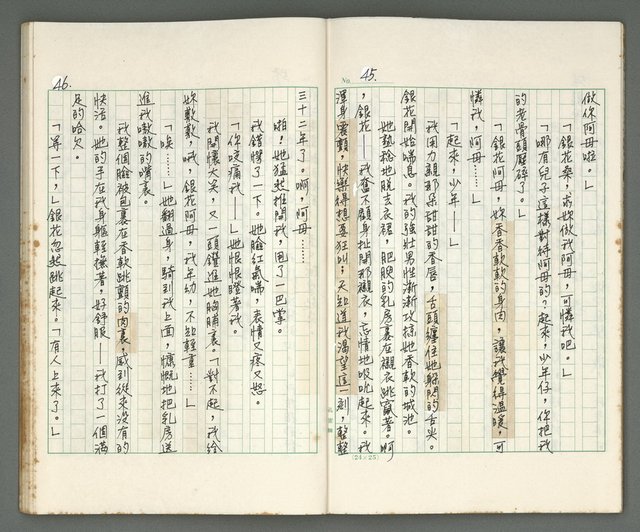 45.
No.
做你阿母啦。」
「銀花桑，求妳做我阿母，可憐我吧。」
「哪有兒子這樣對待阿母的？起來，少年仔，你把我
的老骨頭壓碎了。」
「銀花阿母，妳香香軟軟的身肉，讓我覺得溫暖，可
憐我，阿母……」
「起來，少年——」
我用力親那朵甜甜的香唇，舌頭纏住她躲閃的舌尖。
銀花開始喘息。我的強壯男性漸漸攻掠她香軟的城池。
她熱稔地脫去衣裙，肥腴的乳房裹在襯衣跳竄著。啊
，銀花——我奮不顧身扯開那襯衣，忘情地吸吮起來。我
渾身震顫，快樂得想要狂叫；天知道我渴望這一刻，整整
(24×25)
46.
三十二年了。啊，阿母……
啪！她猛然推開我，甩了一巴掌。
我錯愕了一下。她臉紅氣喘，表情又疼又怒。
「你咬痛我——」她恨恨瞪著我。
我開懷大笑，又一頭鑽進她胸脯裏。「對不起，我給
妳歉歉，呃，我年幼，不知輕重……」
「唉……」她翻過身，騎到我上面，慷慨地把乳房送
進我嗷嗷的嘴裏。
我整個臉被包裹在香軟跳顫的肉裏，感到從來沒有的
快活。她的手在我身軀輕撫著，好舒服——我打了一個滿
足的哈欠。
「等一下，」銀花忽然跳起來。「有人上來了。」